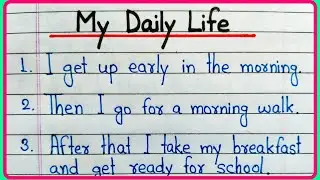 My Daily Life
1. I get up early in the morning.
2. Then I go for a morning walk.
3. After that I take my breakfast
and get ready for school.